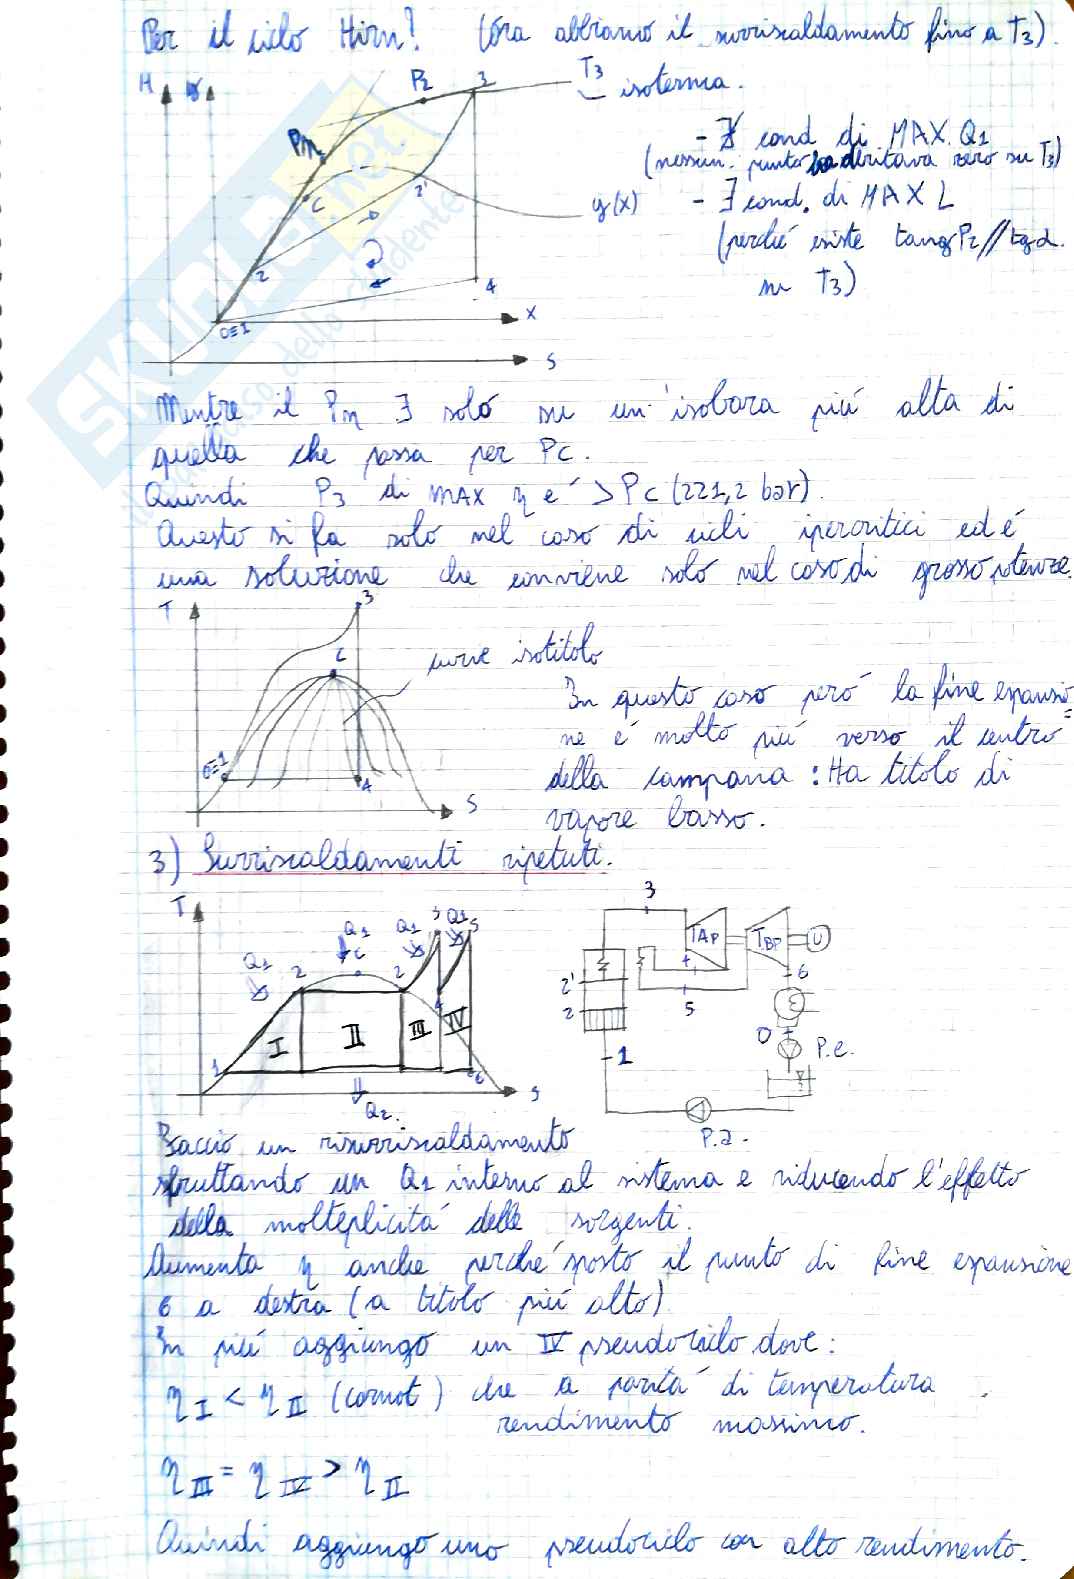 Per il ciclo Hirn! (ora abbiamo il surriscaldamento fino a T3).
H y P2 3 T3 isoterma.
Pη
C
2' y(x)
2
0≡1 4
X
S
- ∄ cond di MAX Q1
(nessun punto ha derivata zero su T3)
- ∃ cond. di MAX L
(perché esiste tang P2 // tg α
su T3)
Mentre il Pη ∃ solo su un'isobara più alta di
quella che passa per Pc.
Quindi P3 di MAX η é > Pc (221,2 bar).
Questo si fa solo nel caso di cicli ipercritici ed é
una soluzione che conviene solo nel caso di grosse potenze.
T 3
C
curve isotitolo
0≡1 4 S
In questo caso peró la fine espansio=
ne é molto piú verso il centro
della campana: Ha titolo di
vapore basso.
3) Surriscaldamenti ripetuti.
T Q1 Q1 3 Q1 5
Q1 2 c 2' 4
I II III IV
1 6 S
Q2
3
TAP TBP U
4
2' 5 6
2 0
1 P.e.
P.a.
Faccio un risurriscaldamento
sfruttando un Q1 interno al sistema e riducendo l'effetto
della molteplicitá delle sorgenti.
Aumenta η anche perché sposto il punto di fine espansione
6 a destra (a titolo piú alto)
In piú aggiungo un IV pseudociclo dove:
ηI < ηII (carnot) che a paritá di temperatura
rendimento massimo.
ηIII = ηIV > ηII
Quindi aggiungo uno pseudociclo con alto rendimento.